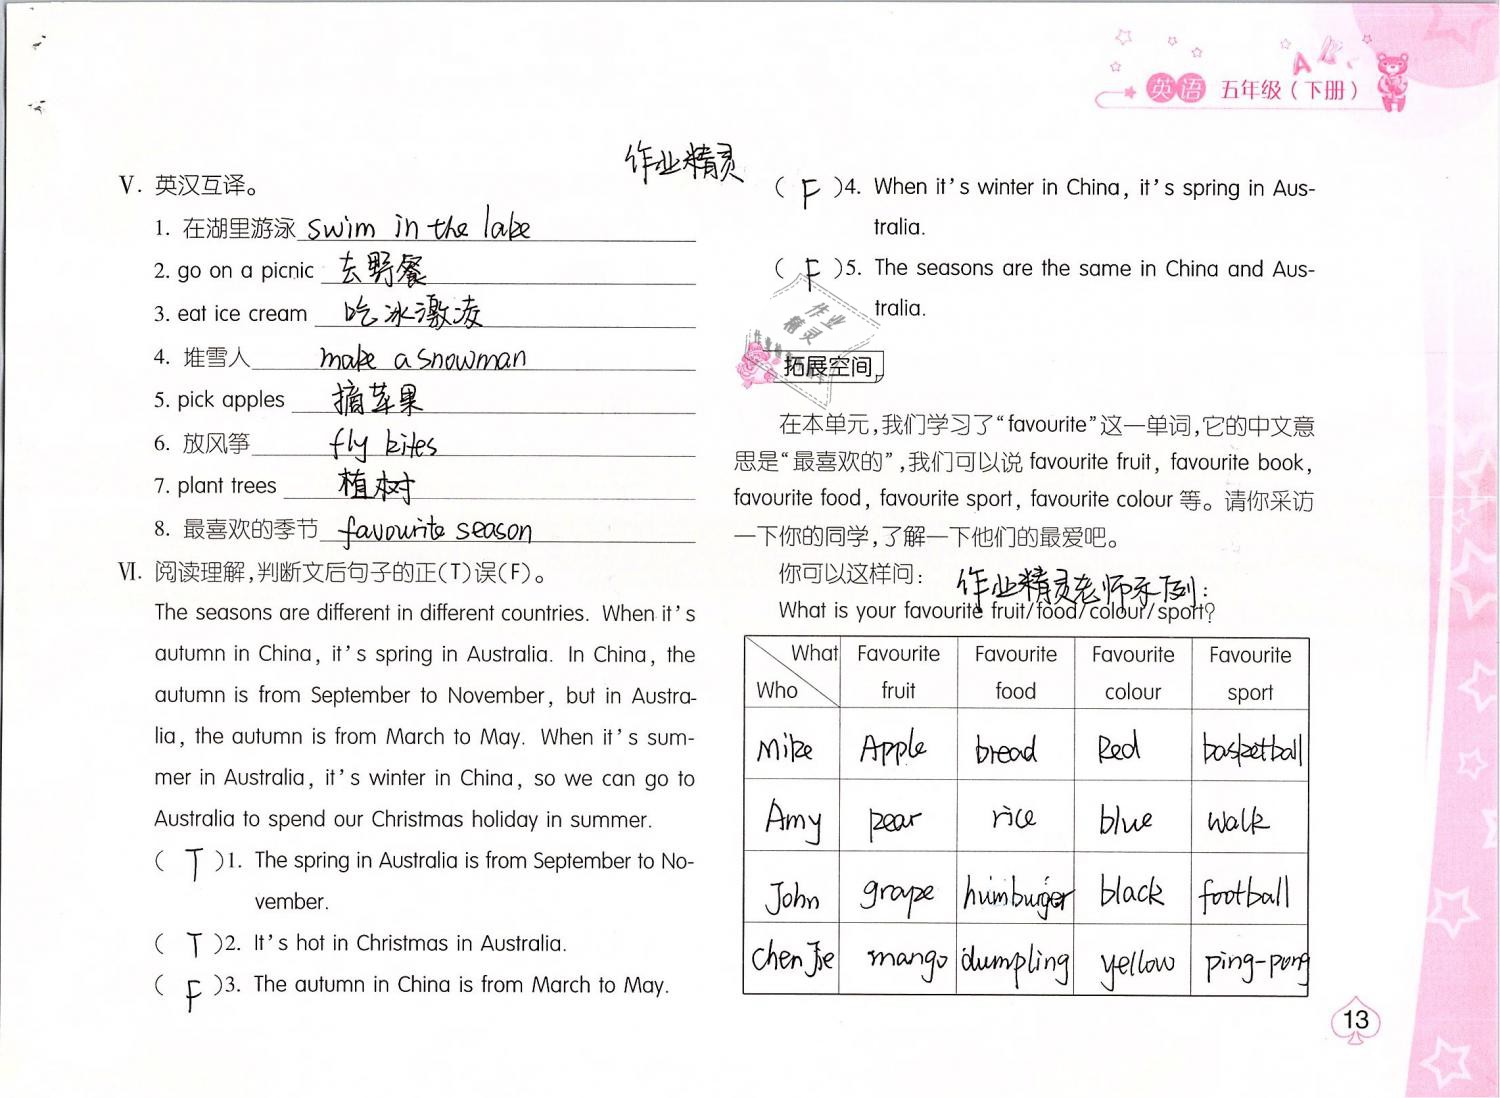 英语 五年级(下册)
作业精灵
V. 英汉互译。
1. 在湖里游泳 swim in the lake
2. go on a picnic 去野餐
3. eat ice cream 吃冰激凌
4. 堆雪人 make a snowman
5. pick apples 摘苹果
6. 放风筝 fly kites
7. plant trees 植树
8. 最喜欢的季节 favourite season
VI. 阅读理解,判断文后句子的正(T)误(F)。
The seasons are different in different countries. When it's
autumn in China, it's spring in Australia. In China, the
autumn is from September to November, but in Austra-
lia, the autumn is from March to May. When it's sum-
mer in Australia, it's winter in China, so we can go to
Australia to spend our Christmas holiday in summer.
( T )1. The spring in Australia is from September to No-
vember.
( T )2. It's hot in Christmas in Australia.
( F )3. The autumn in China is from March to May.
( F )4. When it's winter in China, it's spring in Aus-
tralia.
( F )5. The seasons are the same in China and Aus-
tralia.
作业
精灵
拓展空间
在本单元,我们学习了“favourite”这一单词,它的中文意
思是“最喜欢的”,我们可以说 favourite fruit, favourite book,
favourite food, favourite sport, favourite colour 等。请你采访
一下你的同学,了解一下他们的最爱吧。
你可以这样问: 作业精灵老师示例:
What is your favourite fruit/food/colour/sport?
What Favourite Favourite Favourite Favourite
Who fruit food colour sport
Mike Apple bread Red basketball
Amy pear rice blue walk
John grape humburger black football
Chen Jie mango dumpling yellow ping-pong
13